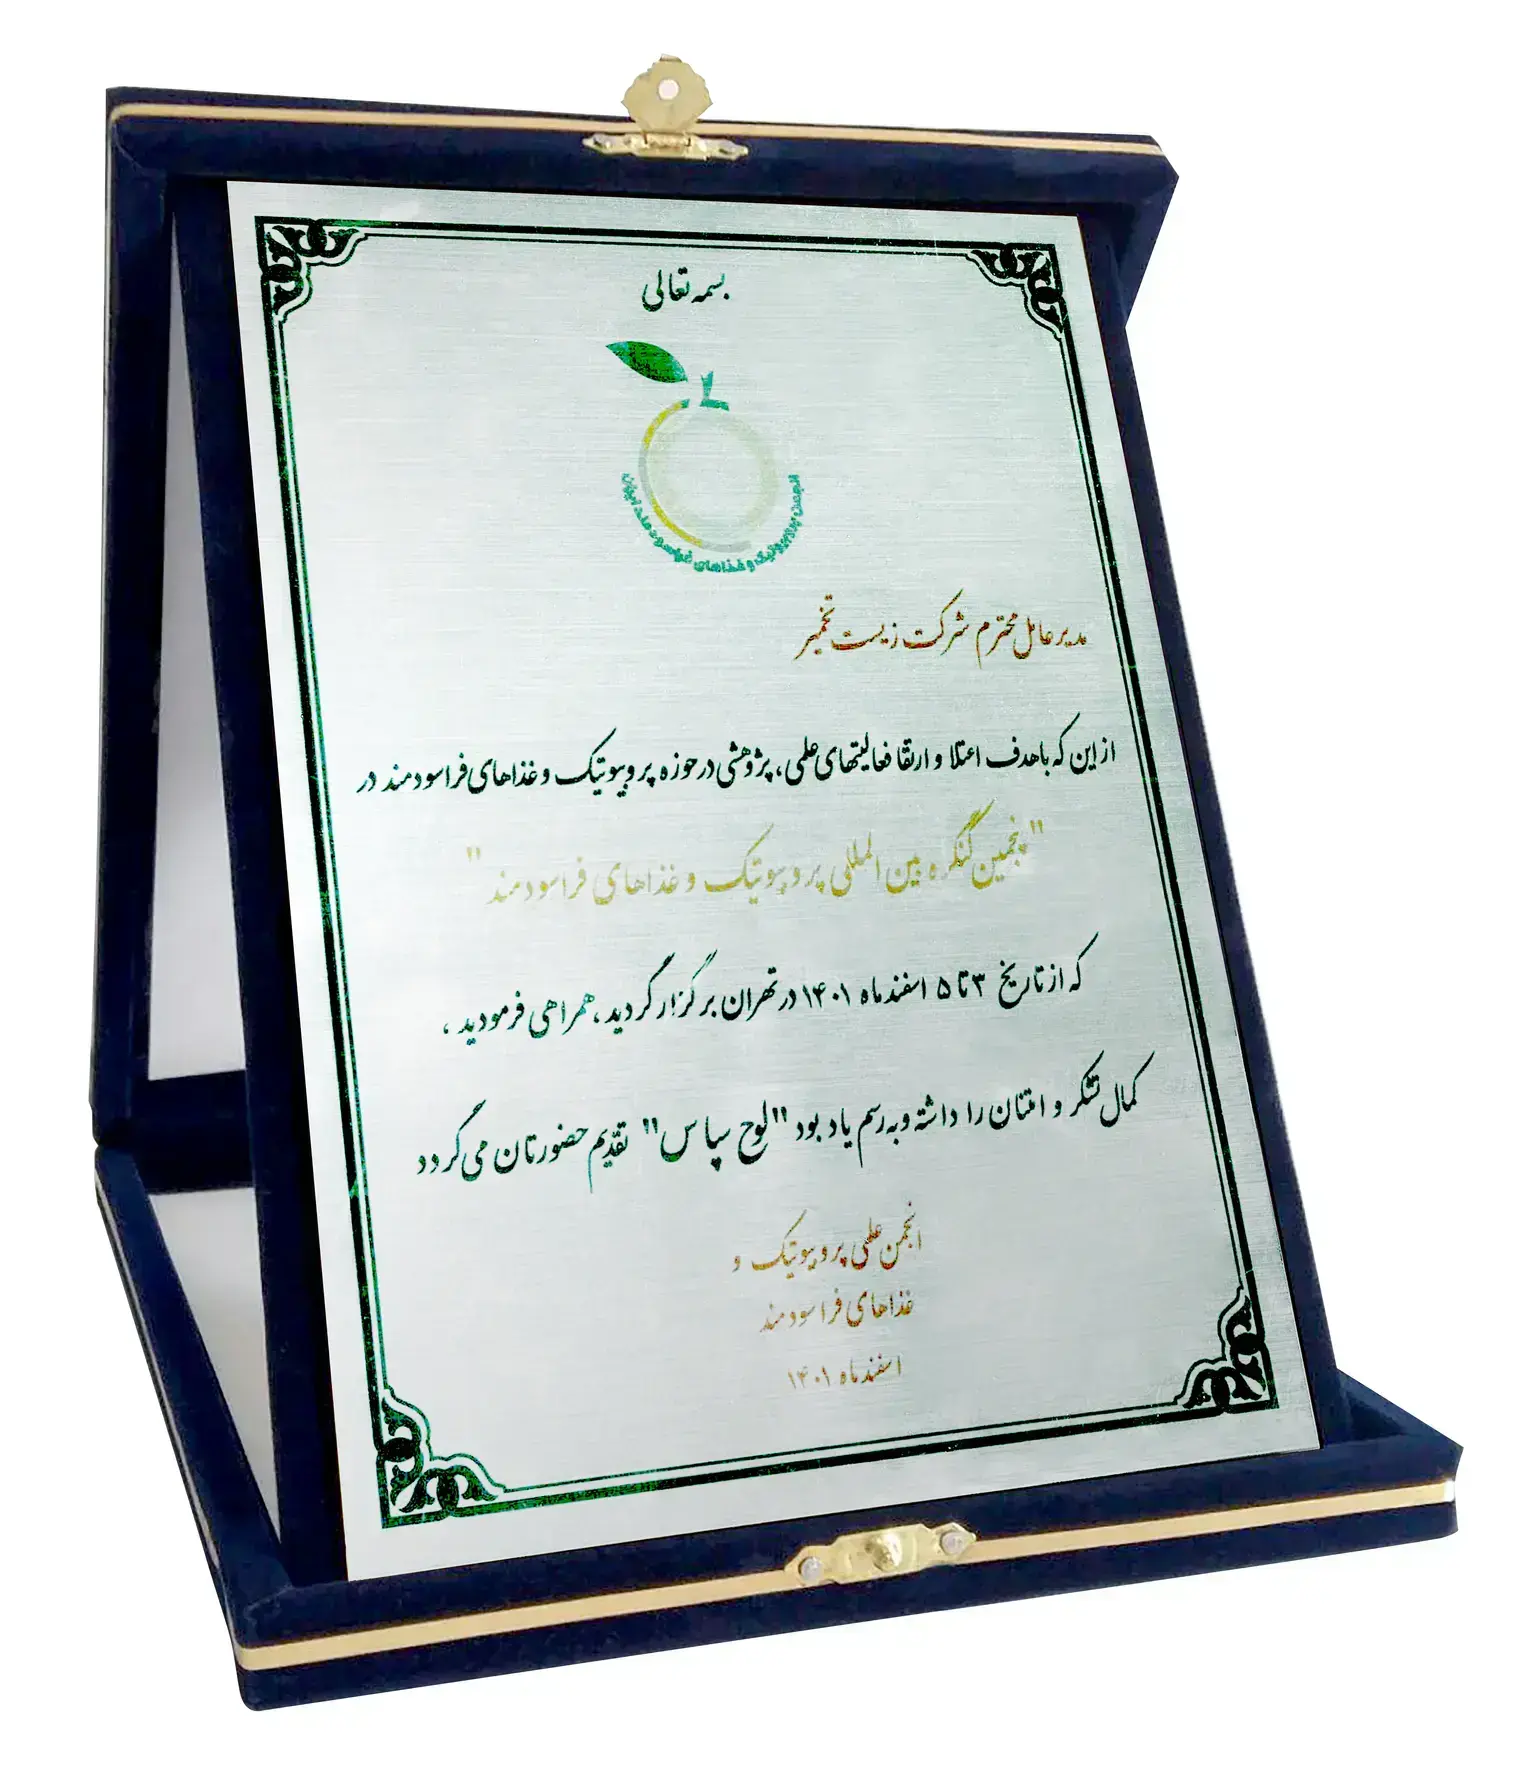 بسمه تعالی
انجمن پروبیوتیک و غذاهای فراسودمند ایران
مدیر عامل محترم شرکت زیست تخمیر
از این که با هدف اعتلا و ارتقا فعالیتهای علمی، پژوهشی در حوزه پروبیوتیک و غذاهای فراسودمند در
"پنجمین کنگره بین المللی پروبیوتیک و غذاهای فراسودمند"
که از تاریخ ۳ تا ۵ اسفندماه ۱۴۰۱ در تهران برگزار گردید، همراهی فرمودید،
کمال تشکر و امتنان را داشته و به رسم یادبود "لوح سپاس" تقدیم حضورتان می گردد
انجمن علمی پروبیوتیک و
غذاهای فراسودمند
اسفندماه ۱۴۰۱